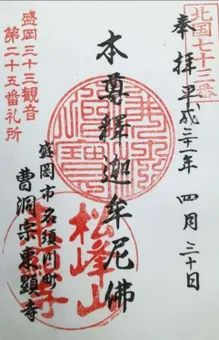 北国七十三番
奉拝 平成三十一年 四月三十日
本尊釋迦牟尼佛
盛岡三十三観音
第二十五番礼所
盛岡市名須川町
曹洞宗東顕寺
松峰山